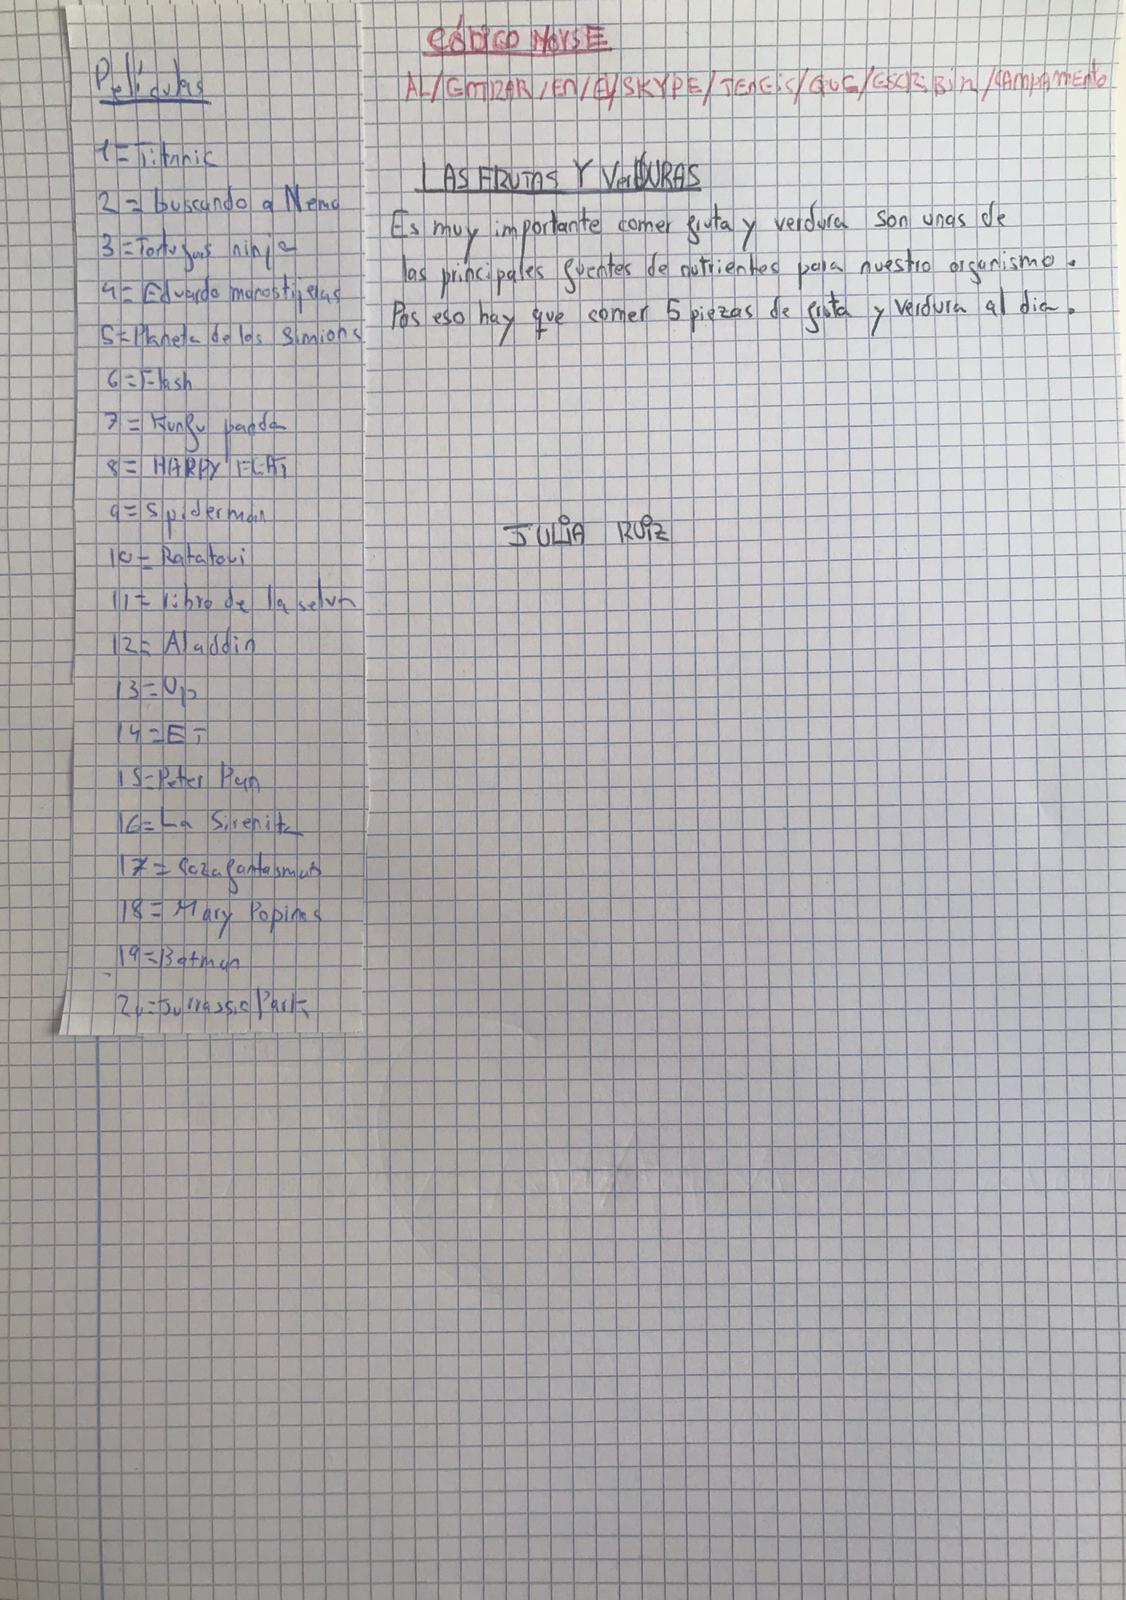 Películas
1=Titanic
2=buscando a Nemo
3=Tortugas ninja
4=Eduardo manostijelas
5=Planeta de los Simions
6=Flash
7=Kunfu padda
8=HAPPY FEAT
9=Spiderman
10=Ratatovi
11=libro de la selva
12=Aladdin
13=Up
14=ET
15=Peter Pan
16=La Sirenita
17=Cazafantasmas
18=Mary Popins
19=Batman
20=Jurrassic Park
CÓDICO MORSE
AL/EMTRAR/EN/El/SKYPE/TENEIS/QUE/ESCRIBIR/CAMPAMENTO
LAS FRUTAS Y VerDURAS
Es muy importante comer fruta y verdura son unas de
las principales fuentes de nutrientes para nuestro organismo.
Pos eso hay que comer 5 piezas de fruta y verdura al dia.
JULIA RUIZ